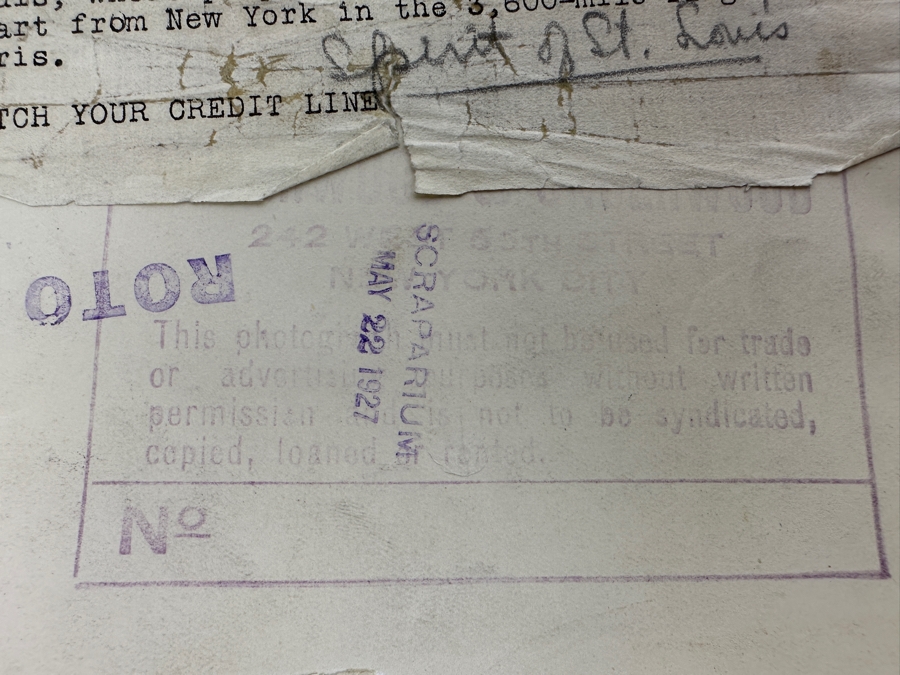 art from New York in the 3,600-mile
ris.
Spirit of St. Louis
TCH YOUR CREDIT LINE
UNDERWOOD
242 WEST 55TH STREET
NEW YORK CITY
ROTO
SCRAPARIUM
MAY 22 1927
This photograph must not be used for trade
or advertising purposes without written
permission and is not to be syndicated,
copied, loaned or rented.
Nº